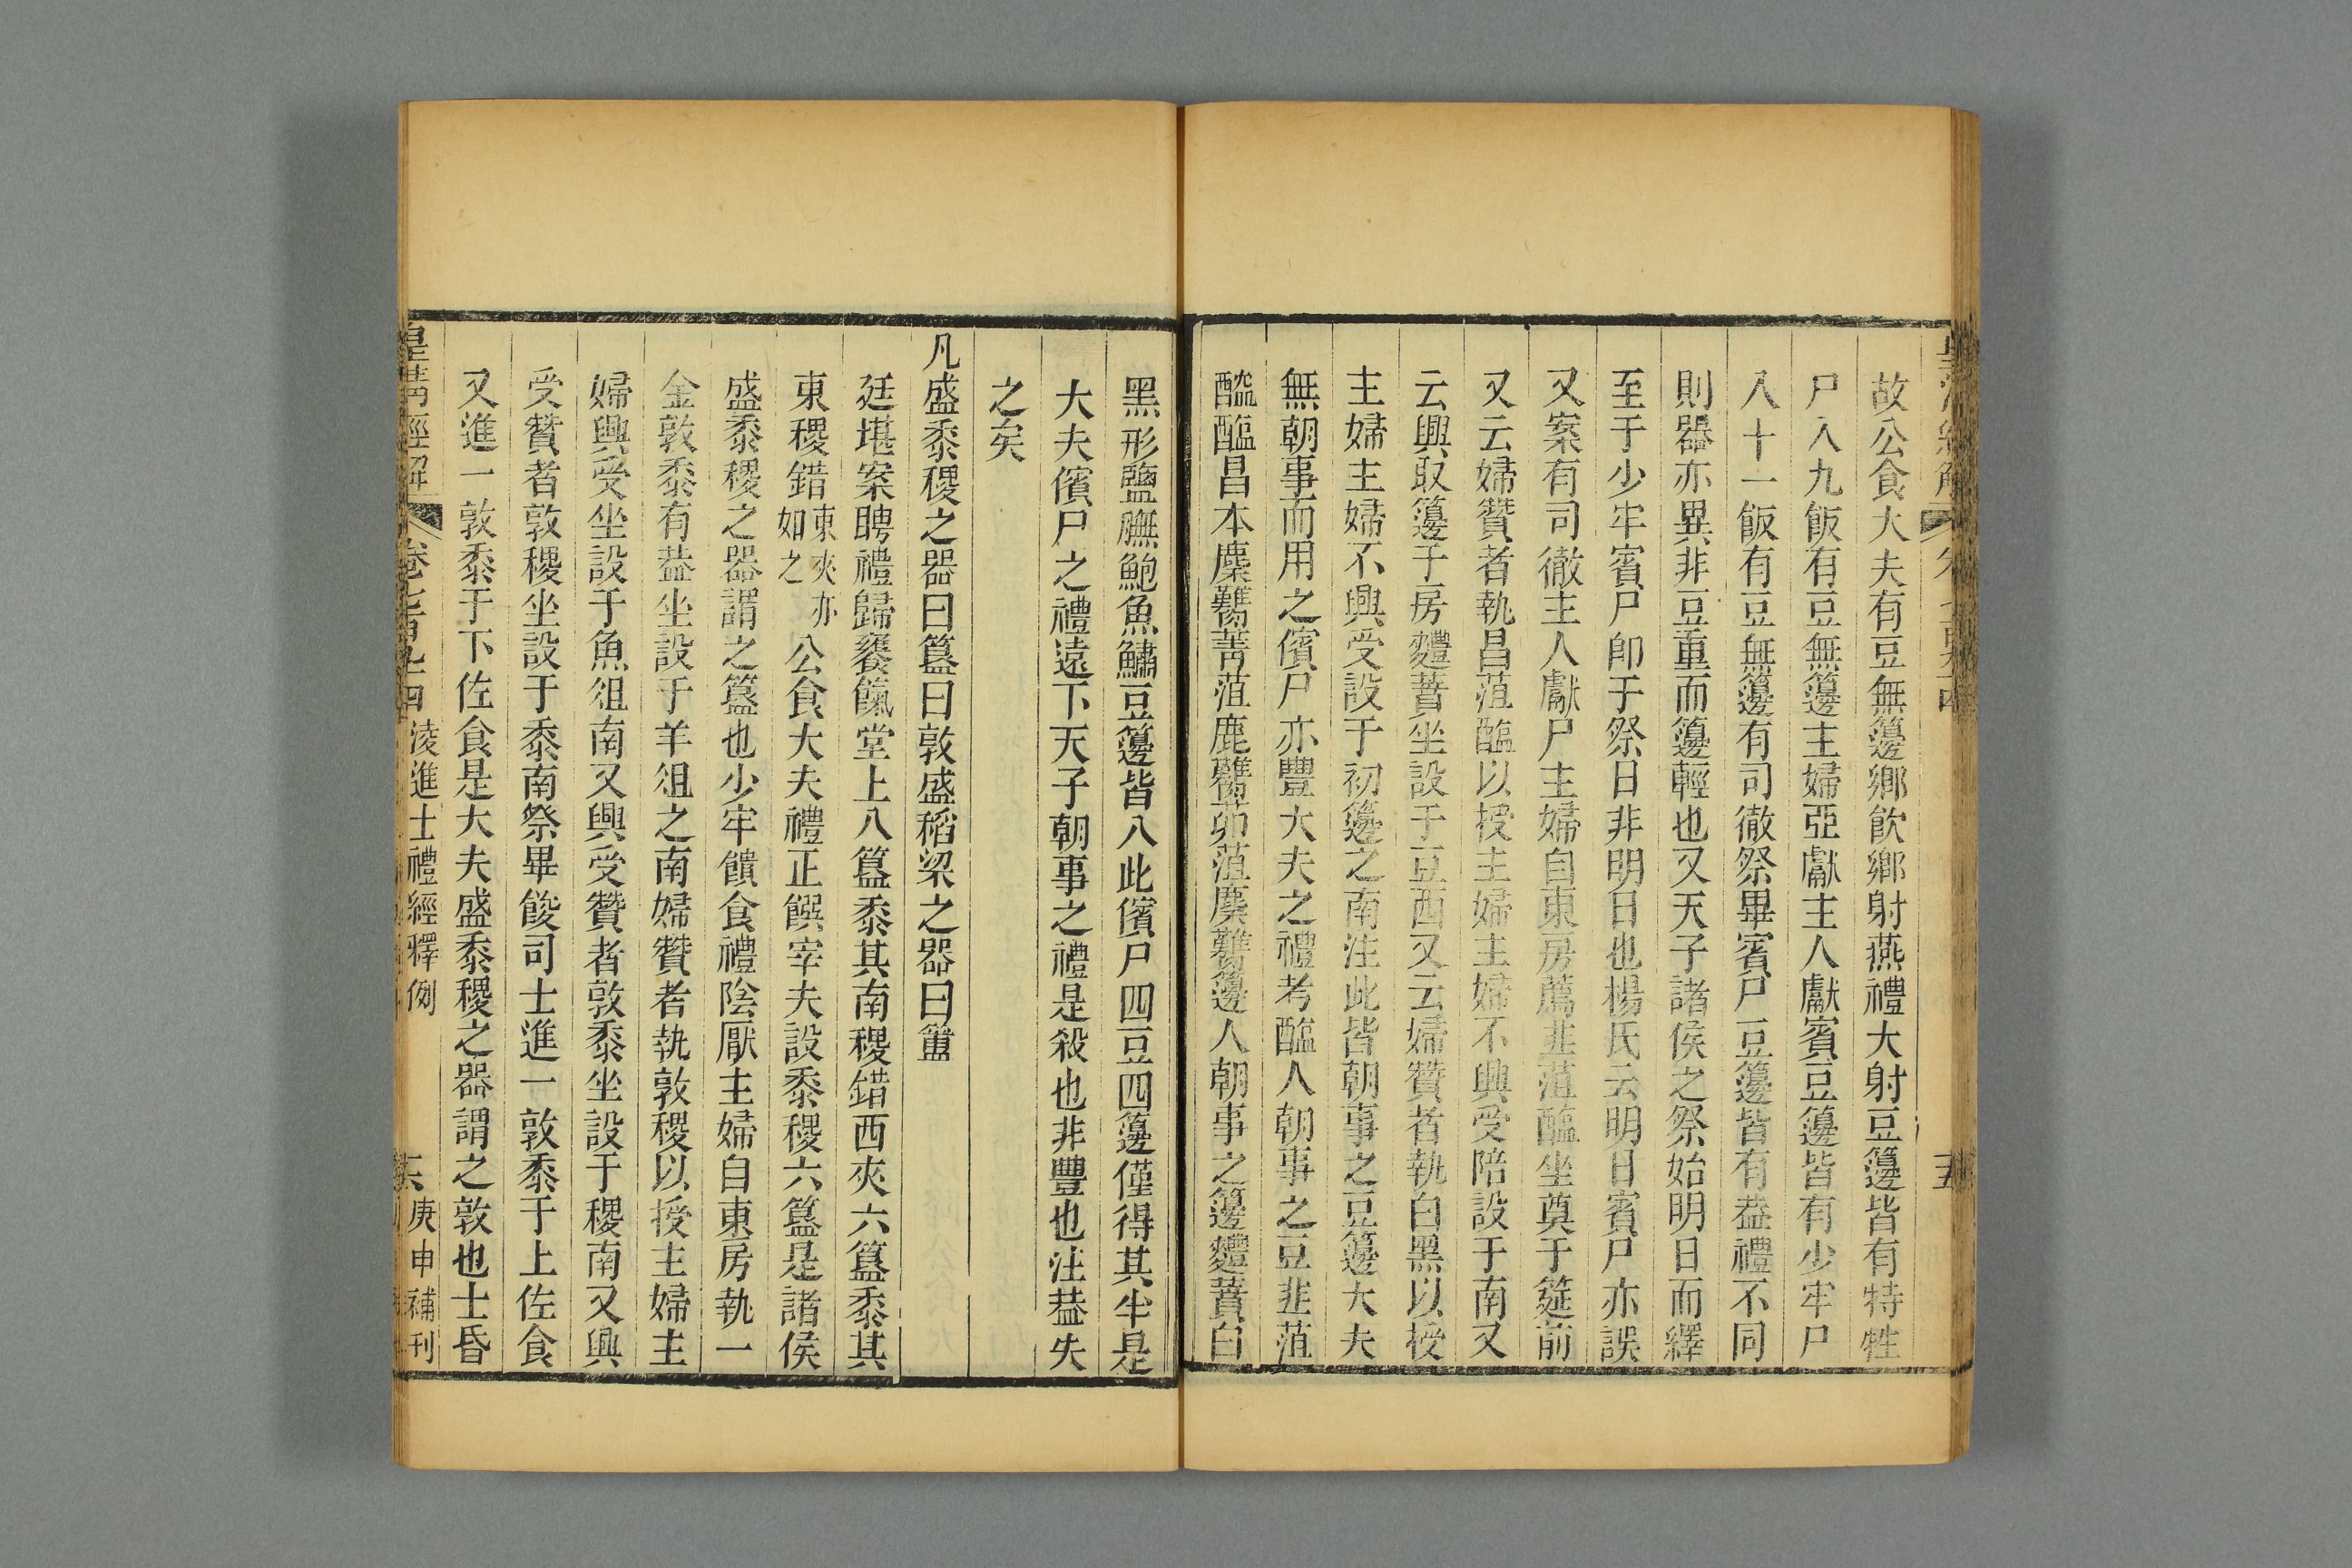 故公食大夫有豆無籩鄉飲鄉射燕禮大射豆籩皆有特牲
尸入九飯有豆無籩主婦亞獻主人獻賓豆籩皆有少牢尸
入十一飯有豆無籩有司徹祭畢賓尸豆籩皆有葢禮不同
則器亦異非豆重而籩輕也又天子諸侯之祭始明日而繹
至于少牢賓尸卽于祭日非明日也楊氏云明日賓尸亦誤
又案有司徹主人獻尸主婦自東房薦韭菹醢坐奠于筵前
又云婦贊者執昌菹醢以授主婦主婦不興受陪設于南又
云興取籩于房麷蕡坐設于豆西又云婦贊者執白黑以授
主婦主婦不興受設于初籩之南注此皆朝事之豆籩大夫
無朝事而用之儐尸亦豐大夫之禮考醢人朝事之豆韭菹
醓醢昌本麋臡菁菹鹿臡茆菹麇臡籩人朝事之籩麷蕡白
黑形鹽膴鮑魚鱐豆籩皆八此儐尸四豆四籩僅得其半是
大夫儐尸之禮遠下天子朝事之禮是殺也非豐也注葢失
之矣
凡盛黍稷之器曰簋曰敦盛稻粱之器曰簠
廷堪案聘禮歸饔餼堂上八簋黍其南稷錯西夾六簋黍其
東稷錯東夾亦如之公食大夫禮正饌宰夫設黍稷六簋是諸侯
盛黍稷之器謂之簋也少牢饋食禮陰厭主婦自東房執一
金敦黍有葢坐設于羊俎之南婦贊者執敦稷以授主婦主
婦興受坐設于魚俎南又興受贊者敦黍坐設于稷南又興
受贊者敦稷坐設于黍南祭畢餕司士進一敦黍于上佐食
又進一敦黍于下佐食是大夫盛黍稷之器謂之敦也士昏
皇清經解 卷七百九十四 淩進士禮經釋例 庚申補刊